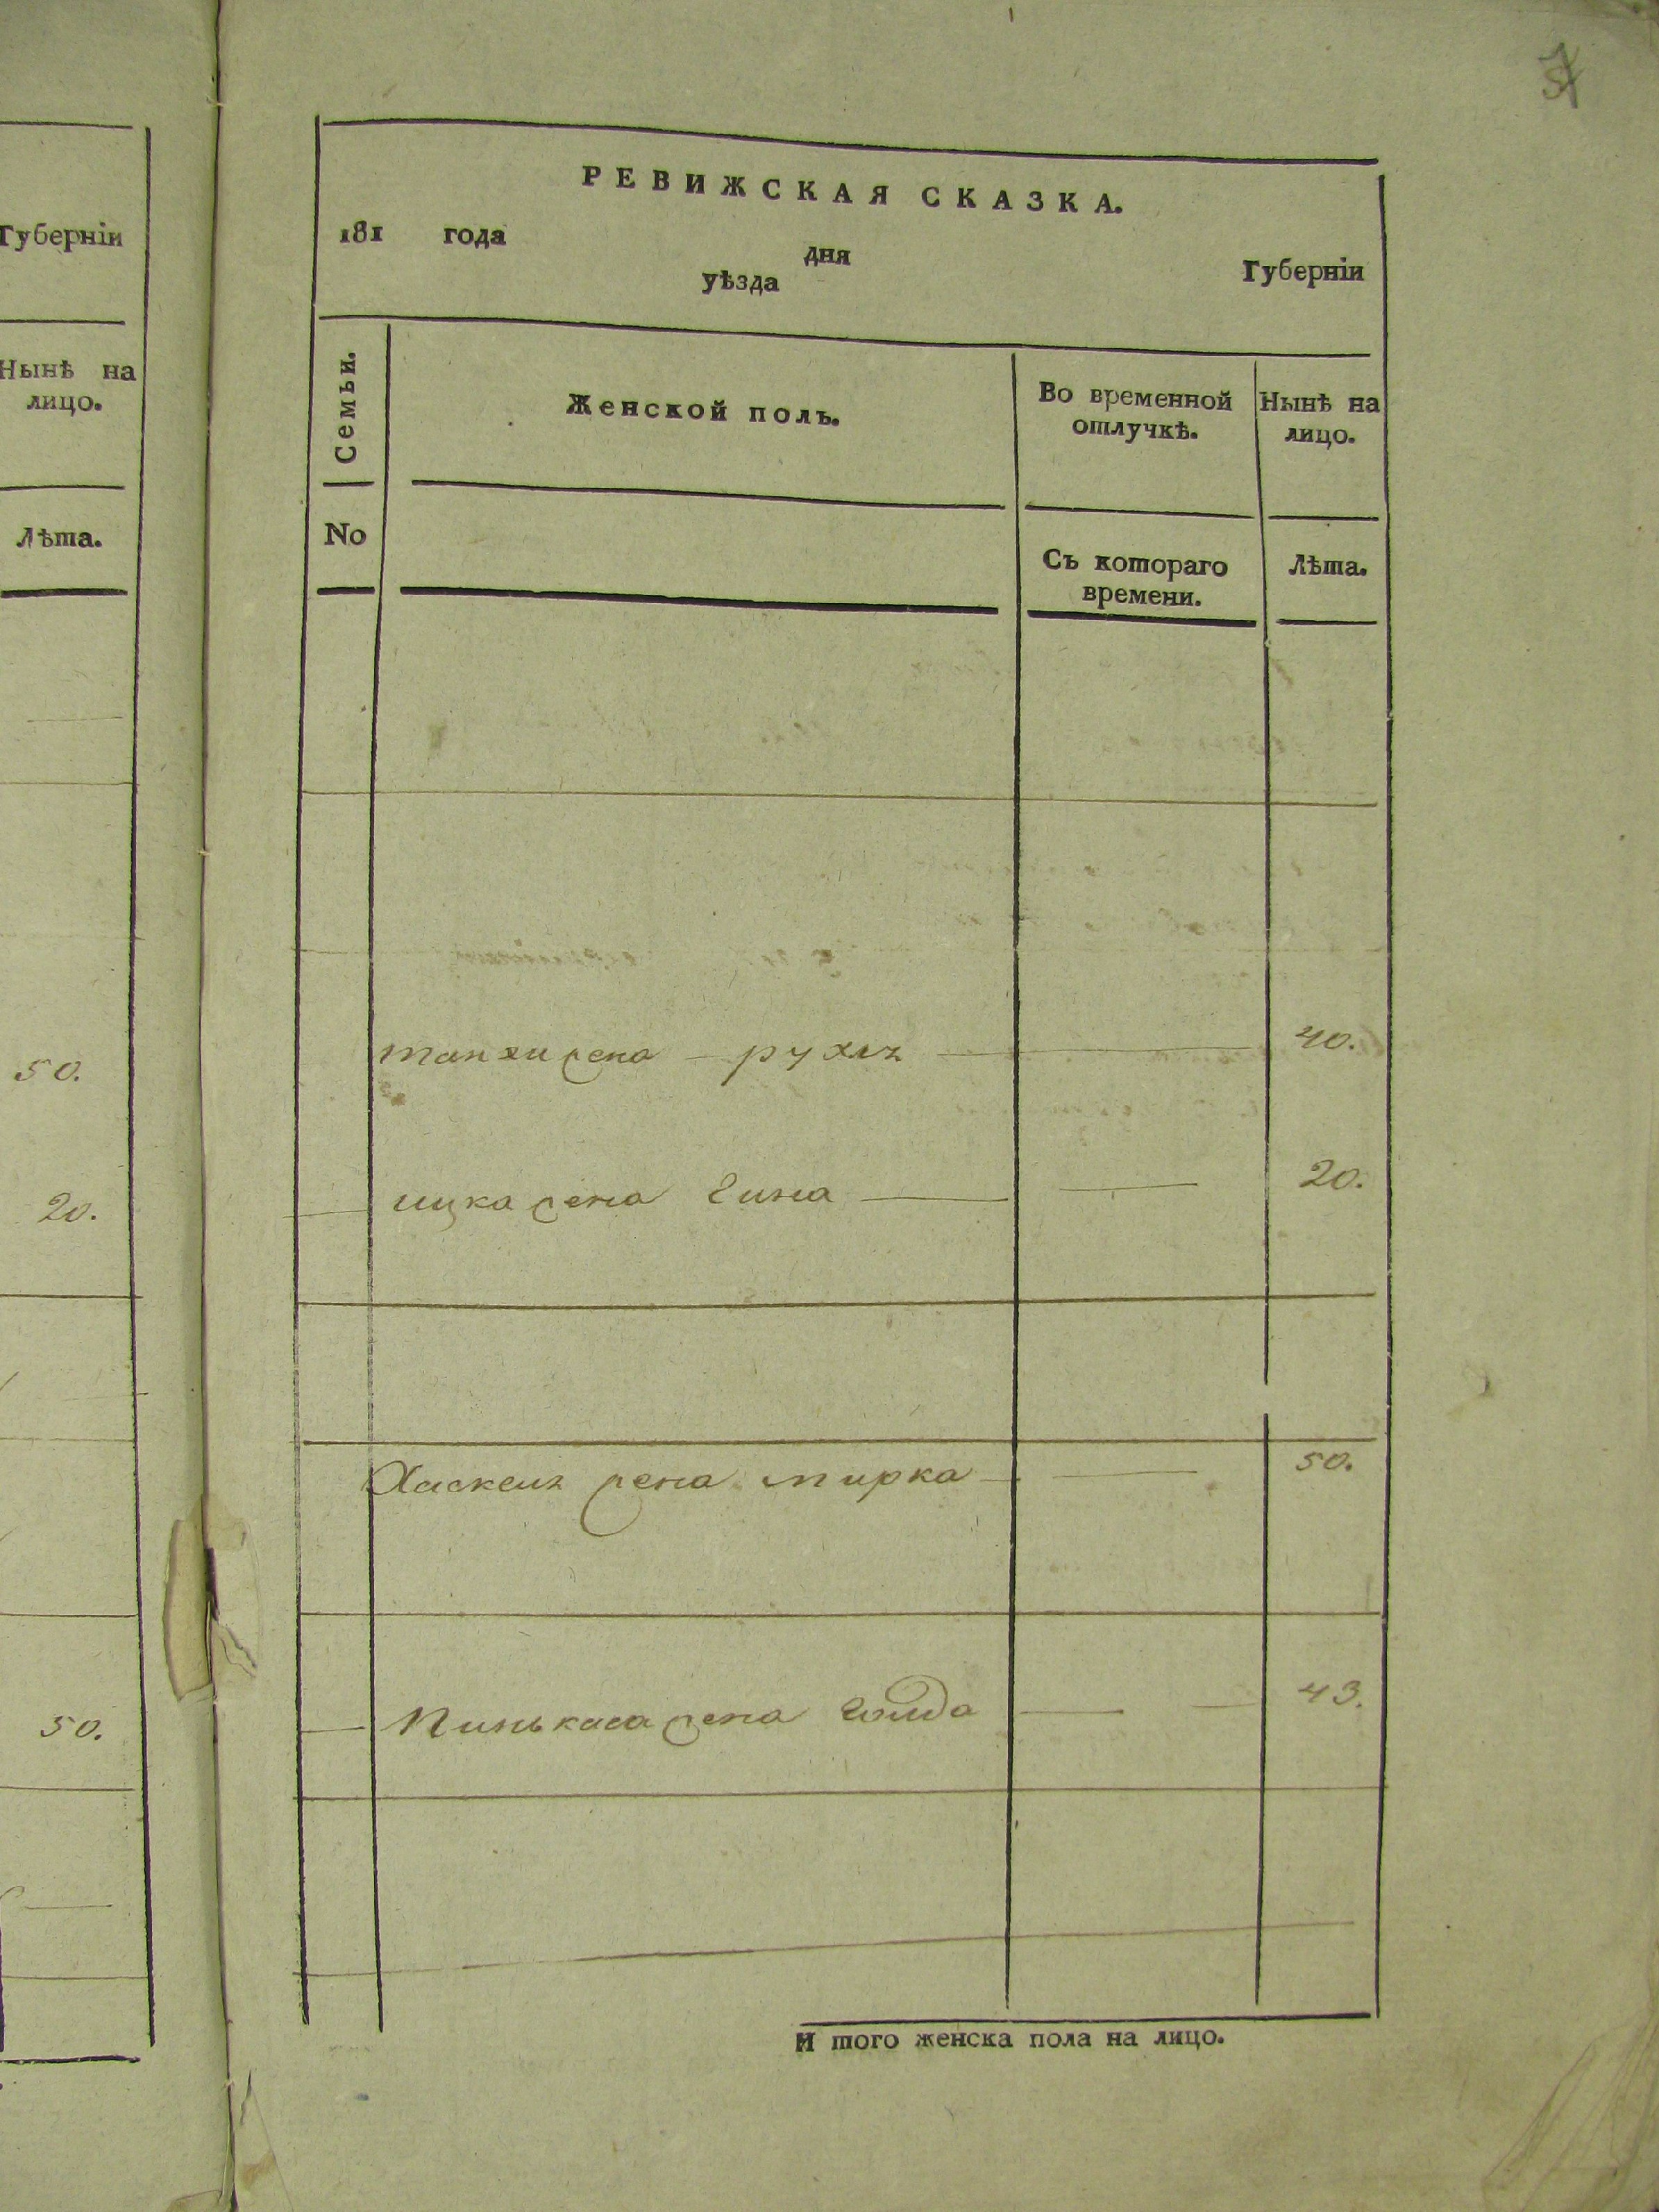 Губернїи
Нынѣ на
лицо.
Лѣта.
50.
20.
50.
РЕВИЖСКАЯ СКАЗКА.
181 года
дня
уѣзда
Губернїи
Семьи.
Женской полъ.
Во временной
отлучкѣ.
Нынѣ на
лицо.
No
Съ котораго
времени.
Лѣта.
жена 40.
ицка жена гина 20.
жена мирка 50.
Пинькаса жена голда 43.
И того женска пола на лицо.